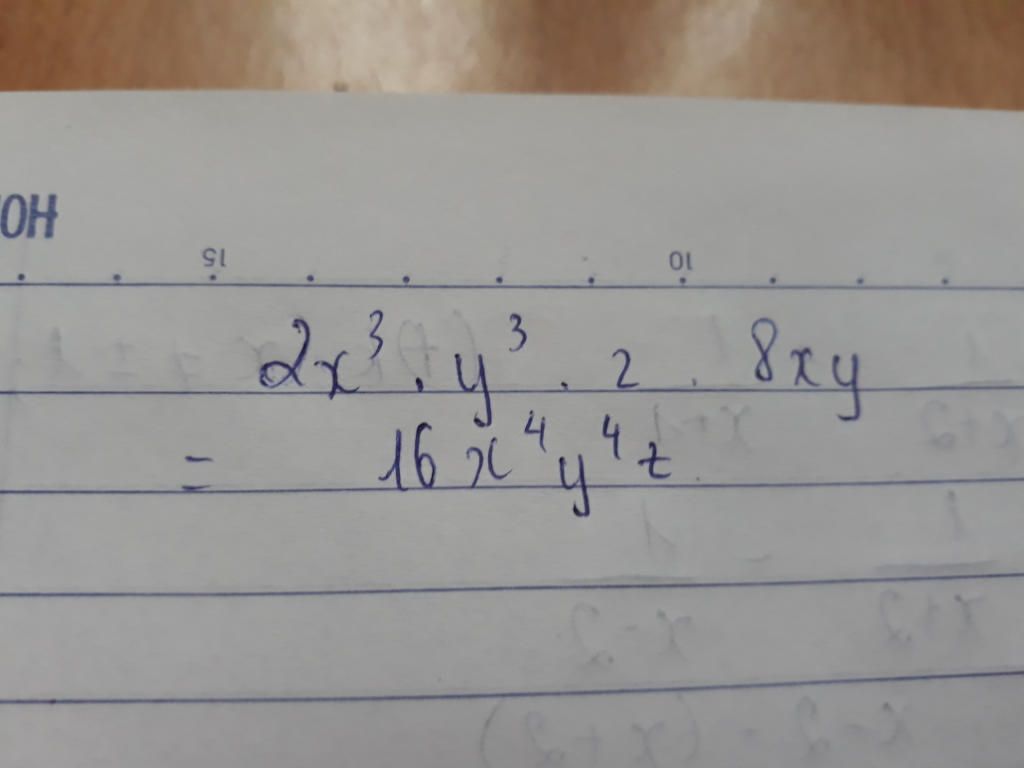 ЮН
15 10
2x³ . y³ . z . 8xy
= 16x⁴y⁴z